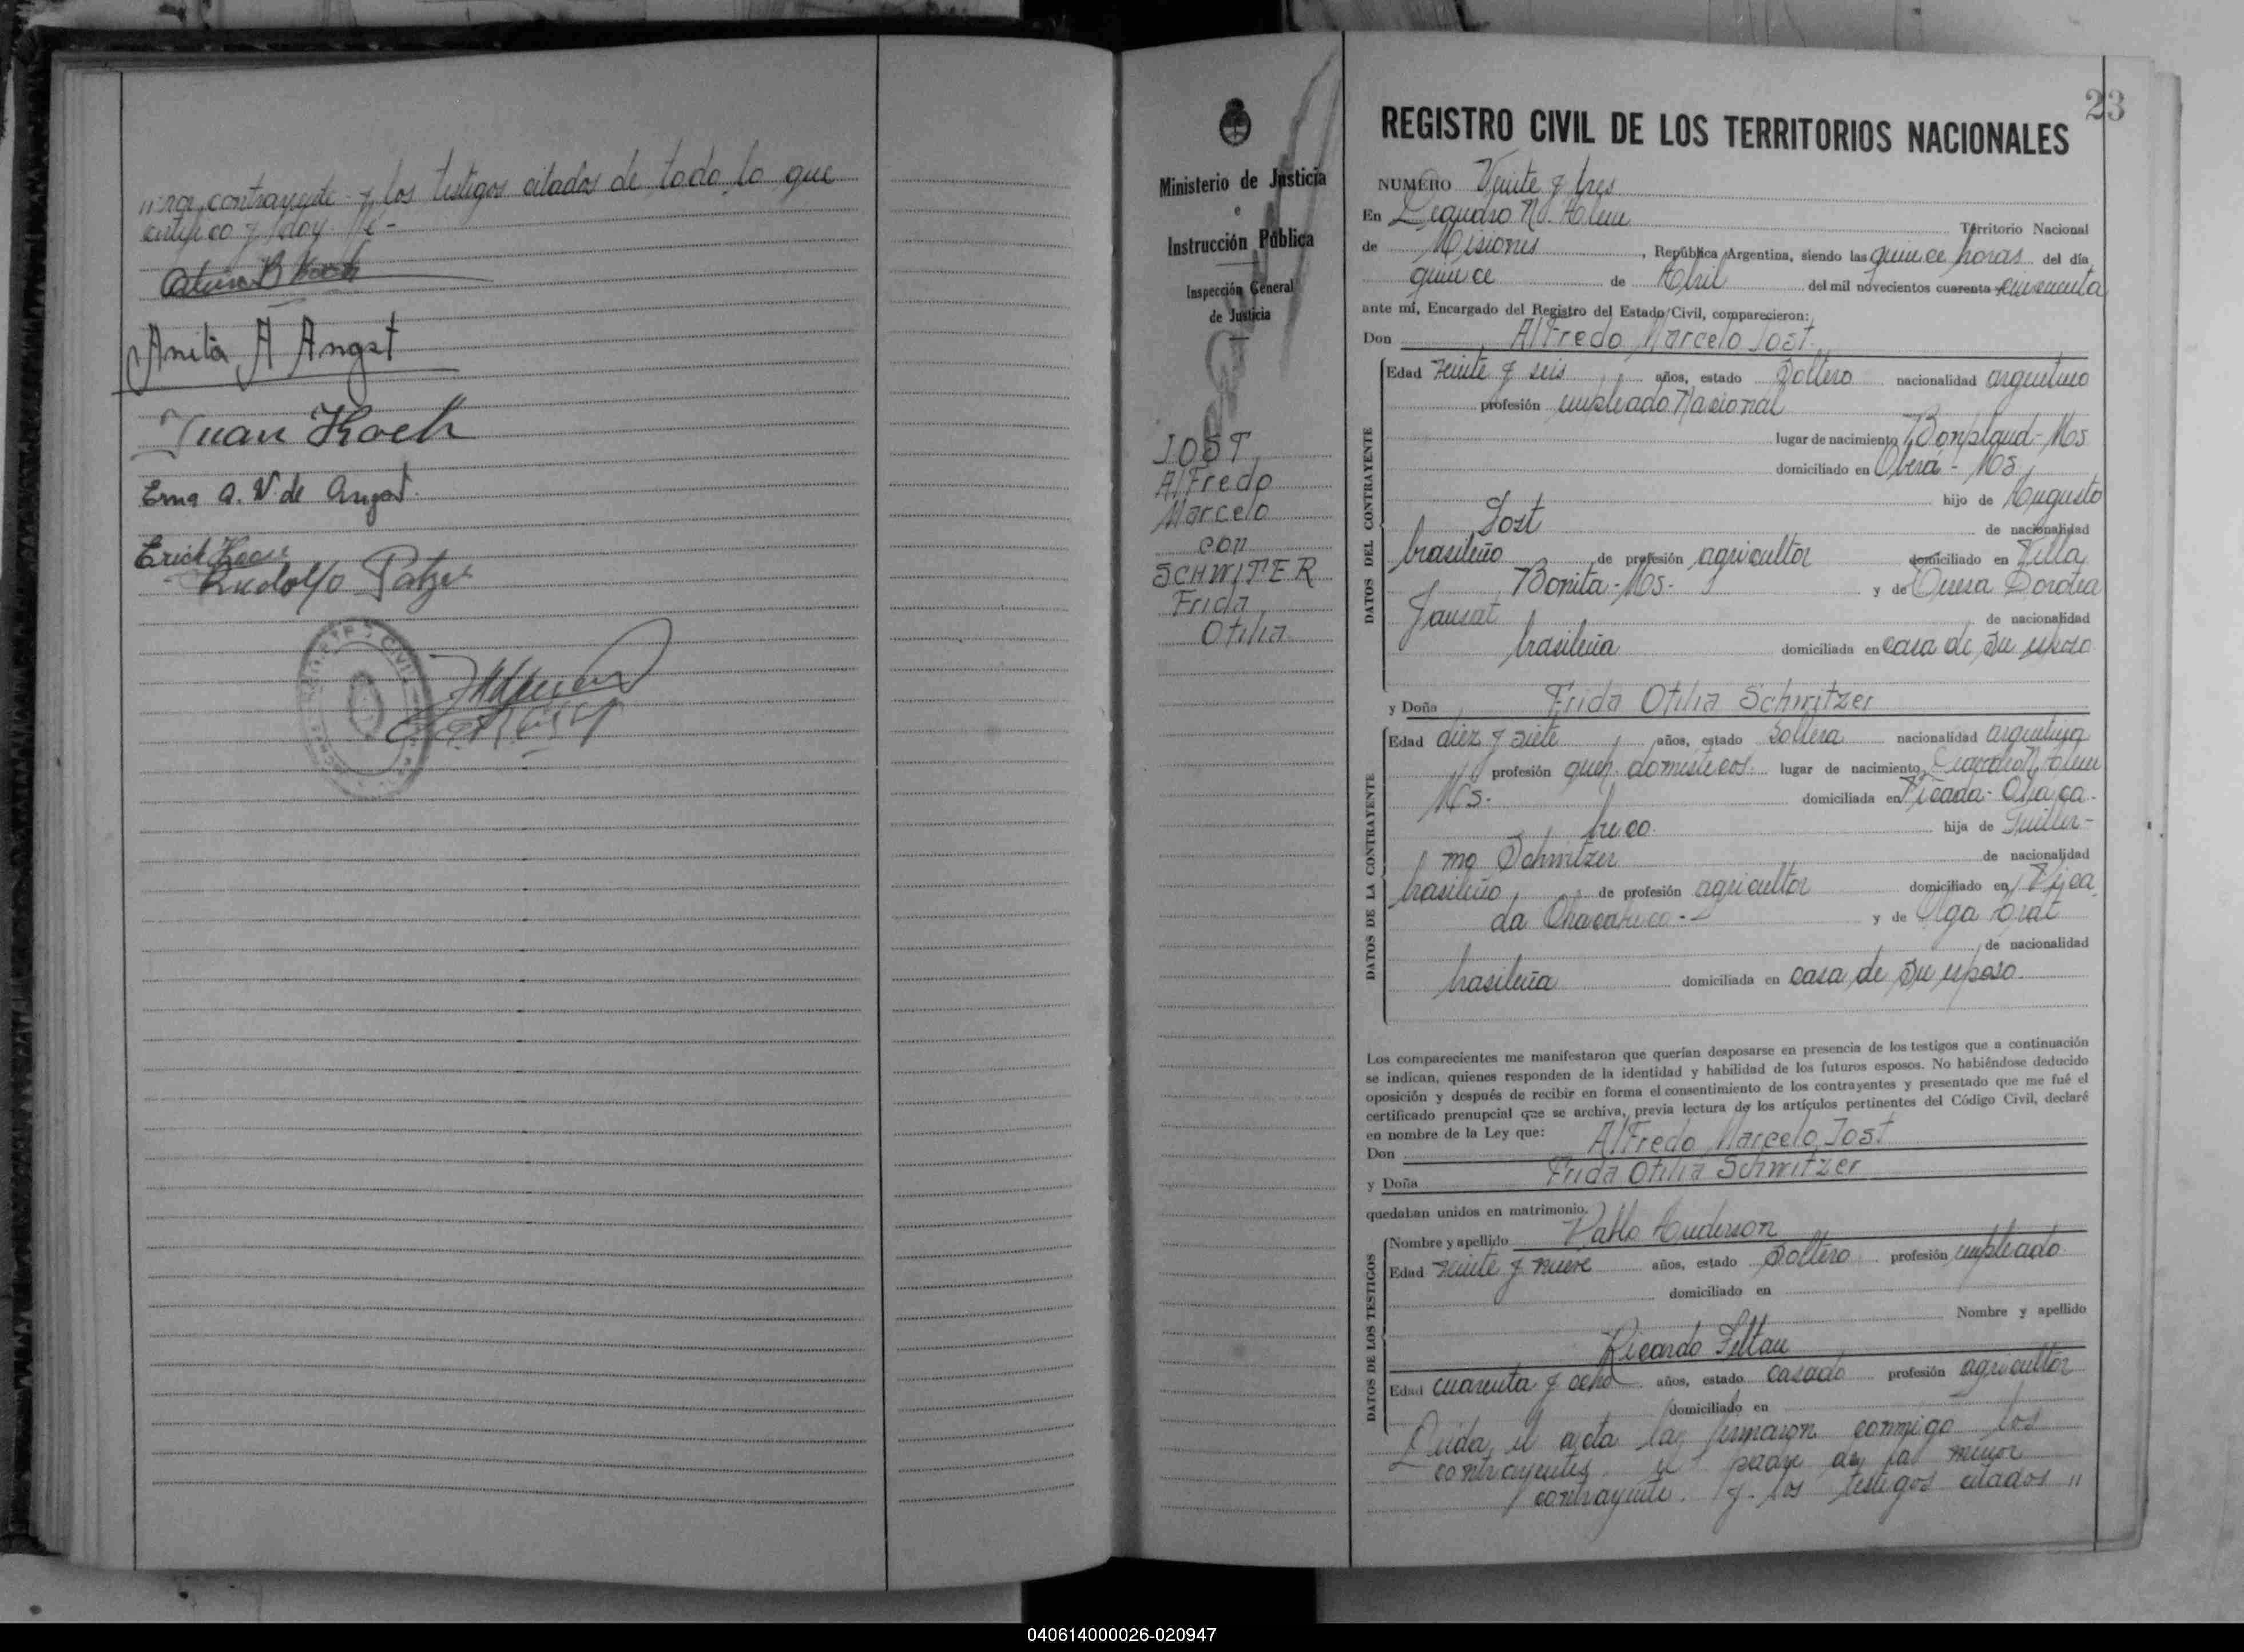 nor contrayente - y los testigos citados de todo lo que
certifico y doy fé -
Anita A Angst
Juan Koch
Erna A. V. de Angst.
Erich Koch
Rudolfo Patzer
Ministerio de Justicia
e
Instrucción Pública
Inspección General
de Justicia
JOST
Alfredo
Marcelo
con
SCHWITER
Frida
Otilia
23
REGISTRO CIVIL DE LOS TERRITORIOS NACIONALES
NUMERO Veinte y tres
En Leandro N. Alem Territorio Nacional
de Misiones, República Argentina, siendo las quince horas del día
quince de Abril del mil novecientos cuarenta cincuenta
ante mí, Encargado del Registro del Estado Civil, comparecieron:
Don Alfredo Marcelo Jost
DATOS DEL CONTRAYENTE
Edad veinte y seis años, estado Soltero nacionalidad argentino
profesión empleado Nacional
lugar de nacimiento Bonpland - Mos
domiciliado en Oberá - Mos,
hijo de Augusto
Jost de nacionalidad
brasileño de profesión agricultor domiciliado en Villa
Bonita - Mos - y de Teresa Dorotea
de nacionalidad
brasileña domiciliada en casa de su esposo
y Doña Frida Otilia Schwitzer
DATOS DE LA CONTRAYENTE
Edad diez y siete años, estado Soltera nacionalidad argentina
profesión queh. domésticos lugar de nacimiento Leandro N. Alem
Mos. domiciliada en Picada - Chaca-
buco. hija de Guiller-
mo Schwitzer de nacionalidad
brasileño de profesión agricultor domiciliado en Pica-
da Chacabuco - y de Olga
de nacionalidad
brasileña domiciliada en casa de su esposo.
Los comparecientes me manifestaron que querían desposarse en presencia de los testigos que a continuación
se indican, quienes responden de la identidad y habilidad de los futuros esposos. No habiéndose deducido
oposición y después de recibir en forma el consentimiento de los contrayentes y presentado que me fué el
certificado prenupcial que se archiva, previa lectura de los artículos pertinentes del Código Civil, declaré
en nombre de la Ley que:
Don Alfredo Marcelo Jost
y Doña Frida Otilia Schwitzer
quedaban unidos en matrimonio.
DATOS DE LOS TESTIGOS
Nombre y apellido Pablo Anderson
Edad veinte y nueve años, estado Soltero profesión empleado
domiciliado en
Nombre y apellido
Ricardo Feltan
Edad cuarenta y ocho años, estado casado profesión agricultor
domiciliado en
Leida el acta la firmaron conmigo los
contrayentes el padre de la menor
contrayente. y los testigos citados "
040614000026-020947